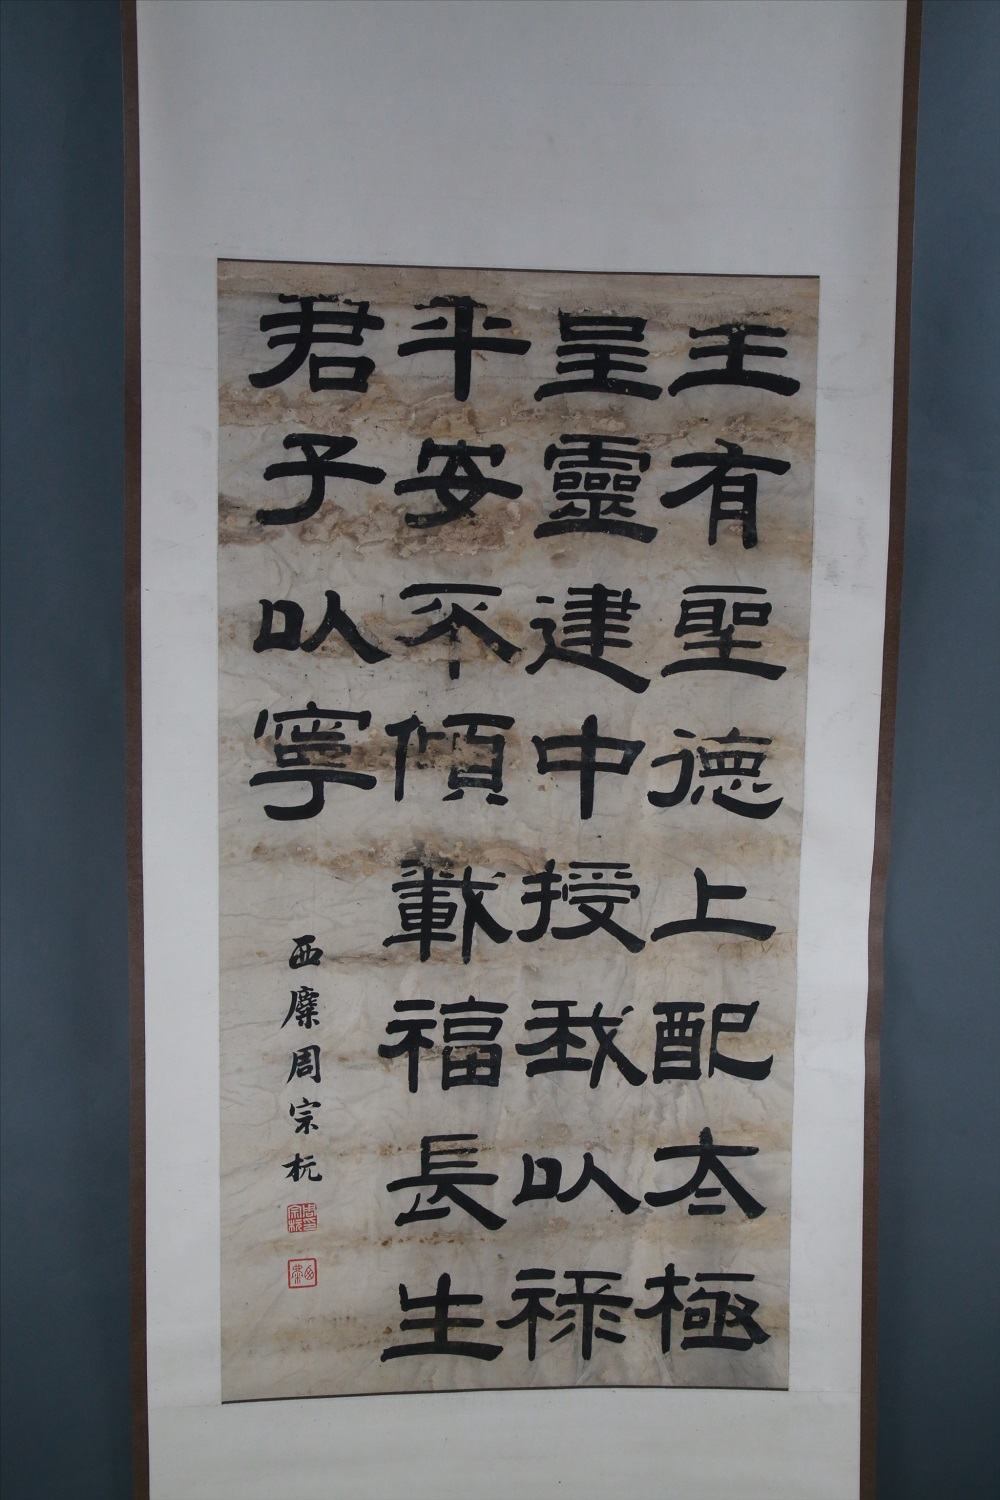 王有聖德上配太極
呈靈建中授我以祿
平安不傾載福長生
君子以寧
西麋周宗杬